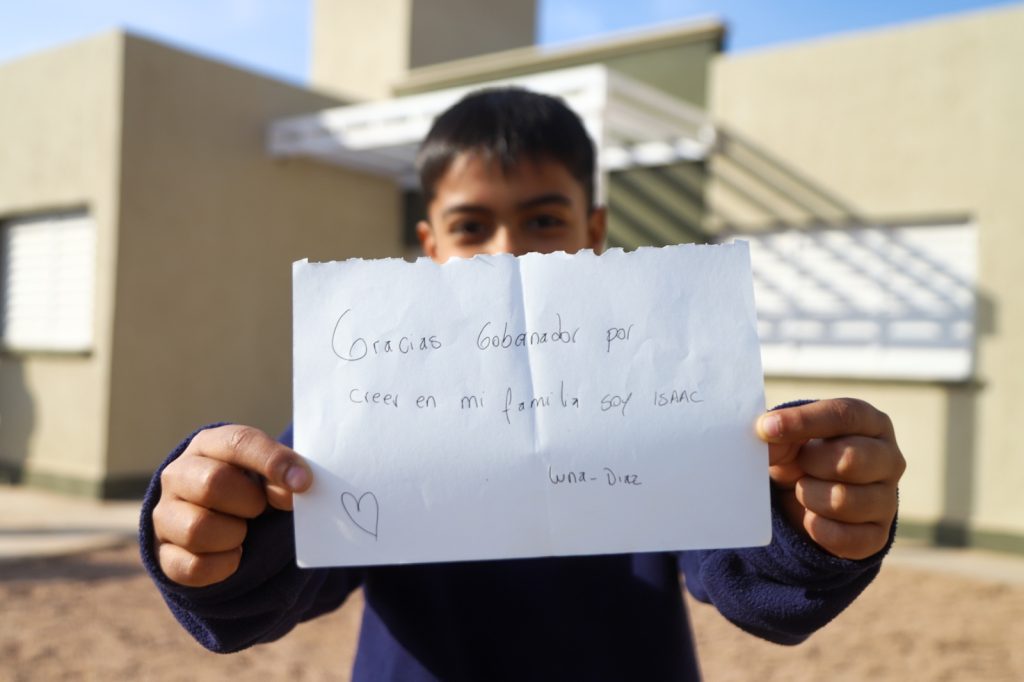 Gracias Gobernador por
creer en mi familia soy ISAAC
Luna-Diaz